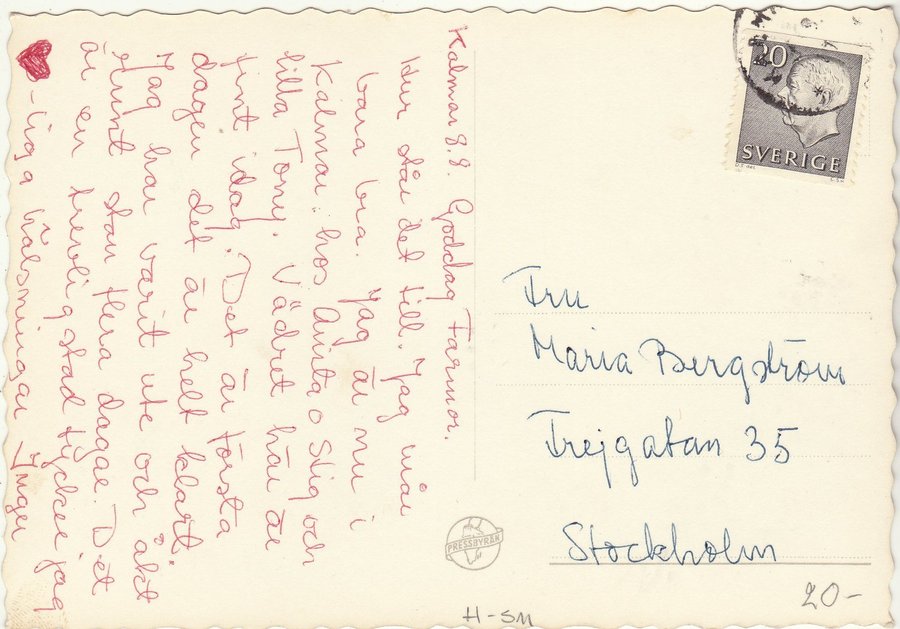 Kalmar 8.8. Goddag Farmor.
Hur står det till. Jag mår
bara bra. Jag är nu i
Kalmar hos Anita o Stig och
lilla Tony. Vädret här är
fint idag. Det är första
dagen det är helt klart.
Jag har varit ute och åkt
runt stan flera dagar. Det
är en trevlig stad tycker jag
-liga hälsningar Inger
20
SVERIGE
Fru
Maria Bergström
Frejgatan 35
Stockholm
PRESSBYRÅN
H-SM
20-